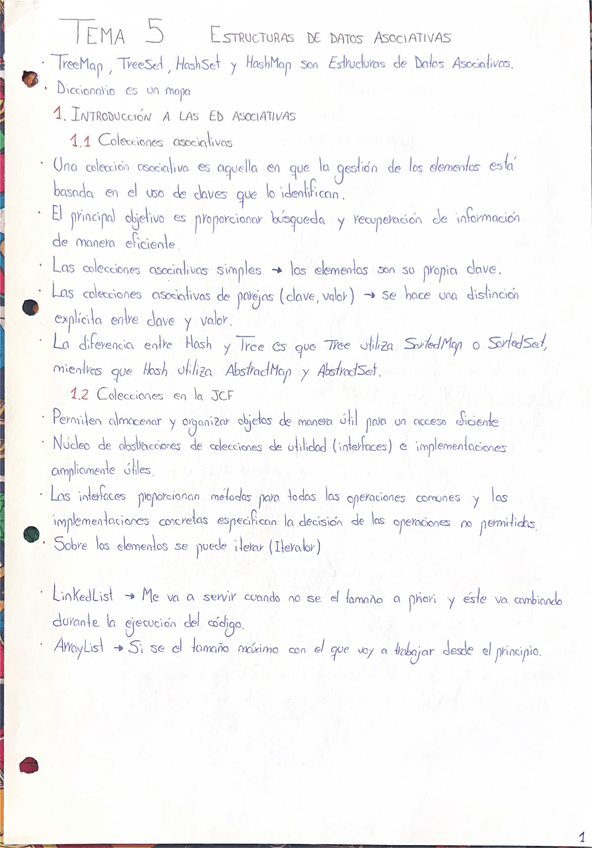 TEMA 5 ESTRUCTURAS DE DATOS ASOCIATIVAS
· TreeMap, TreeSet, HashSet y HashMap son Estructuras de Datos Asociativas.
· Diccionario es un mapa
1. INTRODUCCIÓN A LAS ED ASOCIATIVAS
1.1 Colecciones asociativas
· Una colección asociativa es aquella en que la gestión de los elementos está
basada en el uso de claves que lo identifican.
· El principal objetivo es proporcionar búsqueda y recuperación de información
de manera eficiente.
· Las colecciones asociativas simples → los elementos son su propia clave.
· Las colecciones asociativas de parejas (clave, valor) → se hace una distinción
explícita entre clave y valor.
· La diferencia entre Hash y Tree es que Tree utiliza SortedMap o SortedSet,
mientras que Hash utiliza AbstractMap y AbstractSet.
1.2 Colecciones en la JCF
· Permiten almacenar y organizar objetos de manera útil para un acceso eficiente
· Núcleo de abstracciones de colecciones de utilidad (interfaces) e implementaciones
ampliamente útiles.
· Las interfaces proporcionan métodos para todas las operaciones comunes y las
implementaciones concretas especifican la decisión de las operaciones no permitidas.
· Sobre los elementos se puede iterar (Iterator)
· LinkedList → Me va a servir cuando no se el tamaño a priori y éste va cambiando
durante la ejecución del código.
· ArrayList → Si se el tamaño máximo con el que voy a trabajar desde el principio.
1